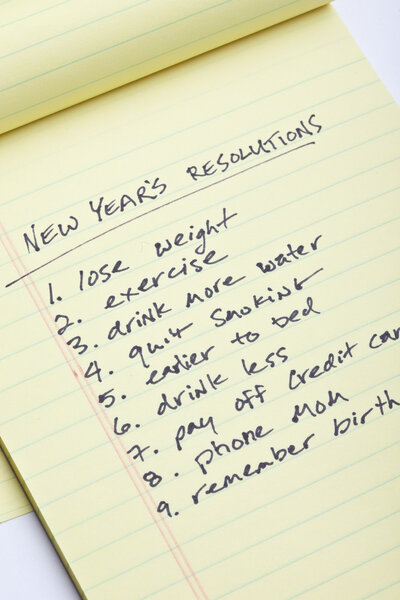 NEW YEAR'S RESOLUTIONS
1. lose weight
2. exercise
3. drink more water
4. quit smoking
5. earlier to bed
6. drink less
7. pay off credit car
8. phone Mom
9. remember birth